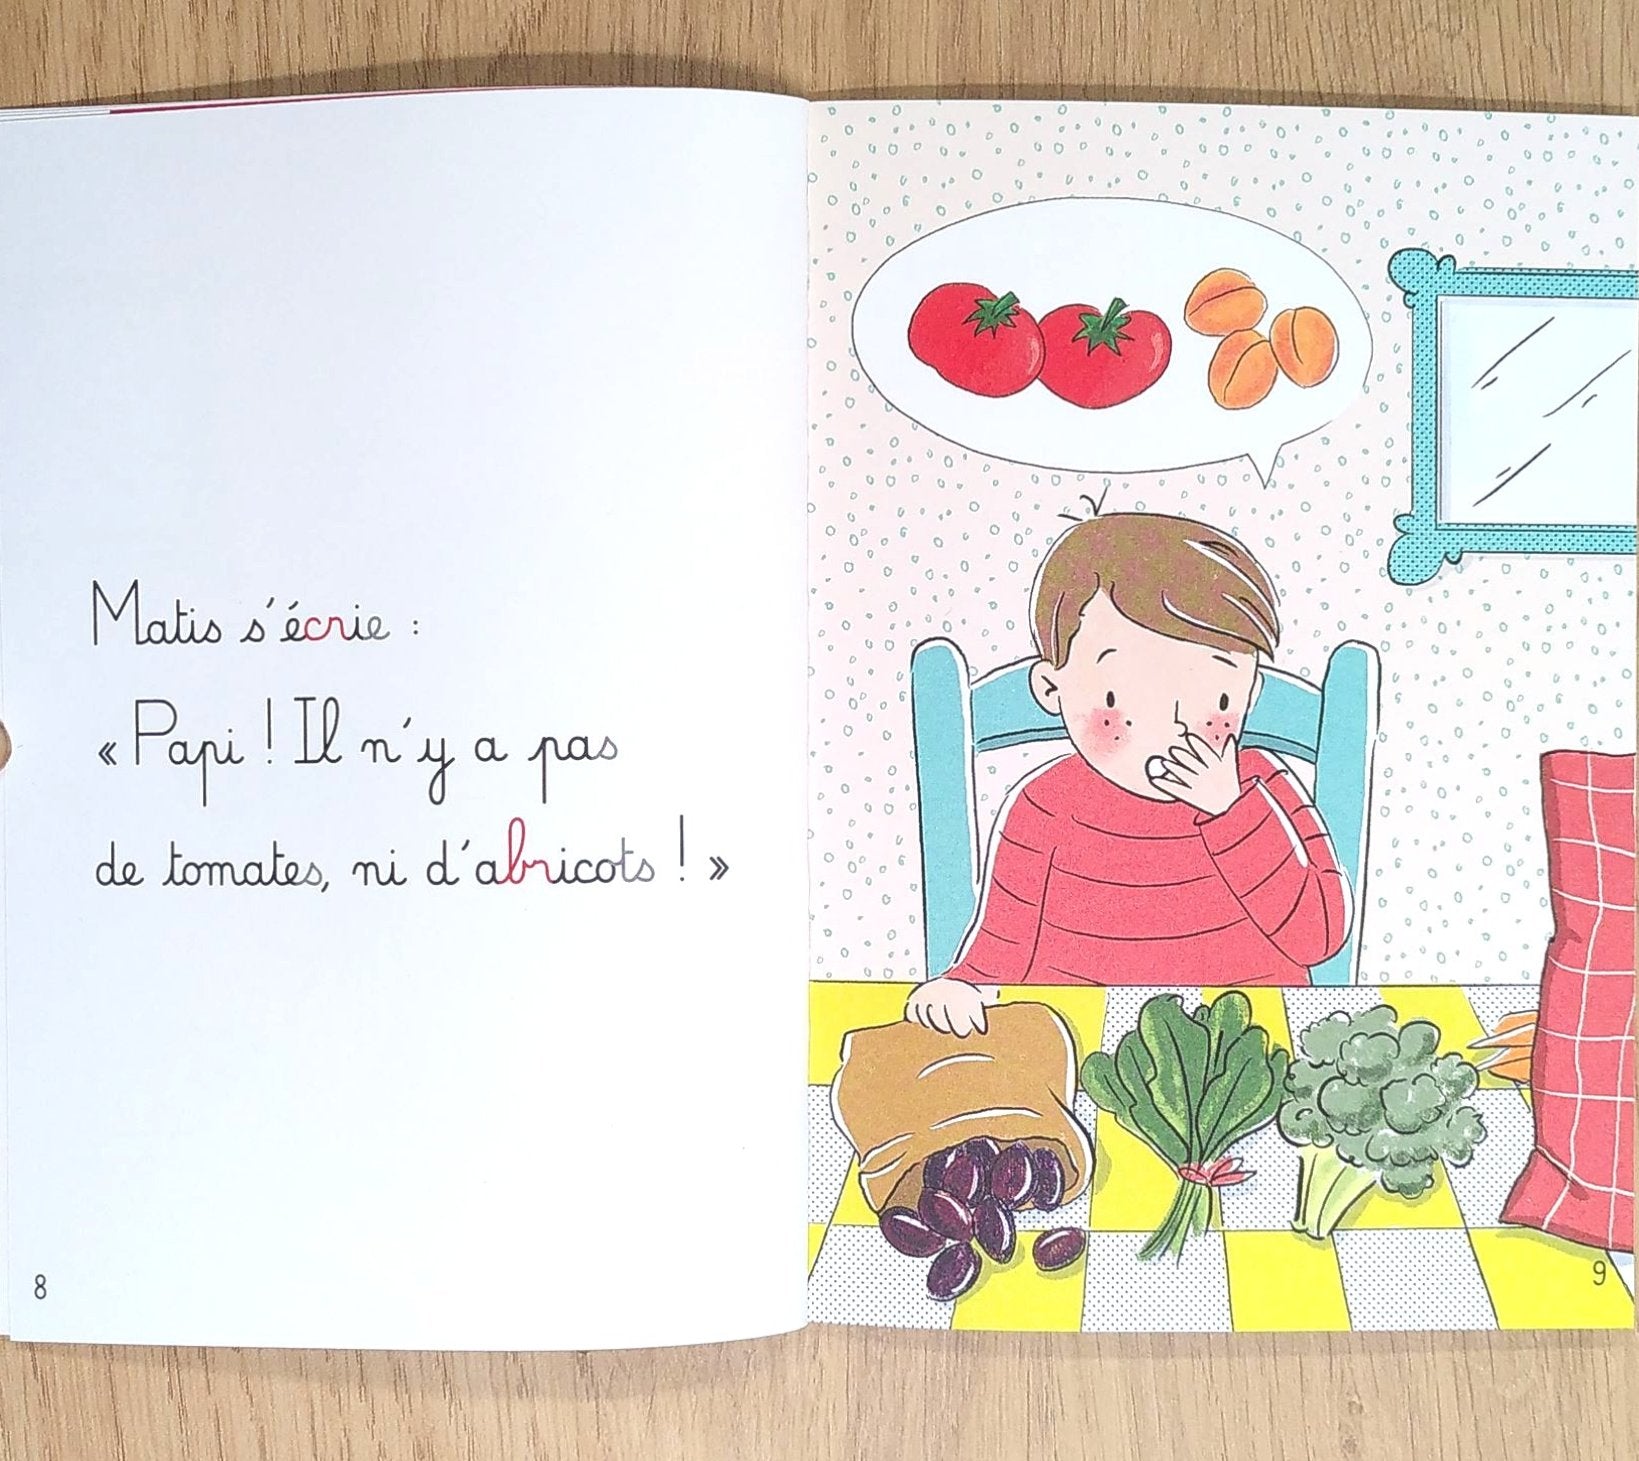 Matis s'écrie :
« Papi ! Il n'y a pas
de tomates, ni d'abricots ! »
8
9